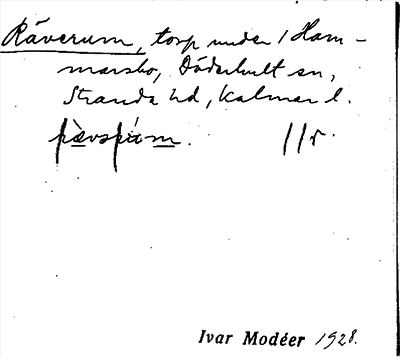 Räverum, torp under 1 Ham-
marsbo, Döderhult sn,
Stranda hd, Kalmar l.
Ivar Modéer 1928.